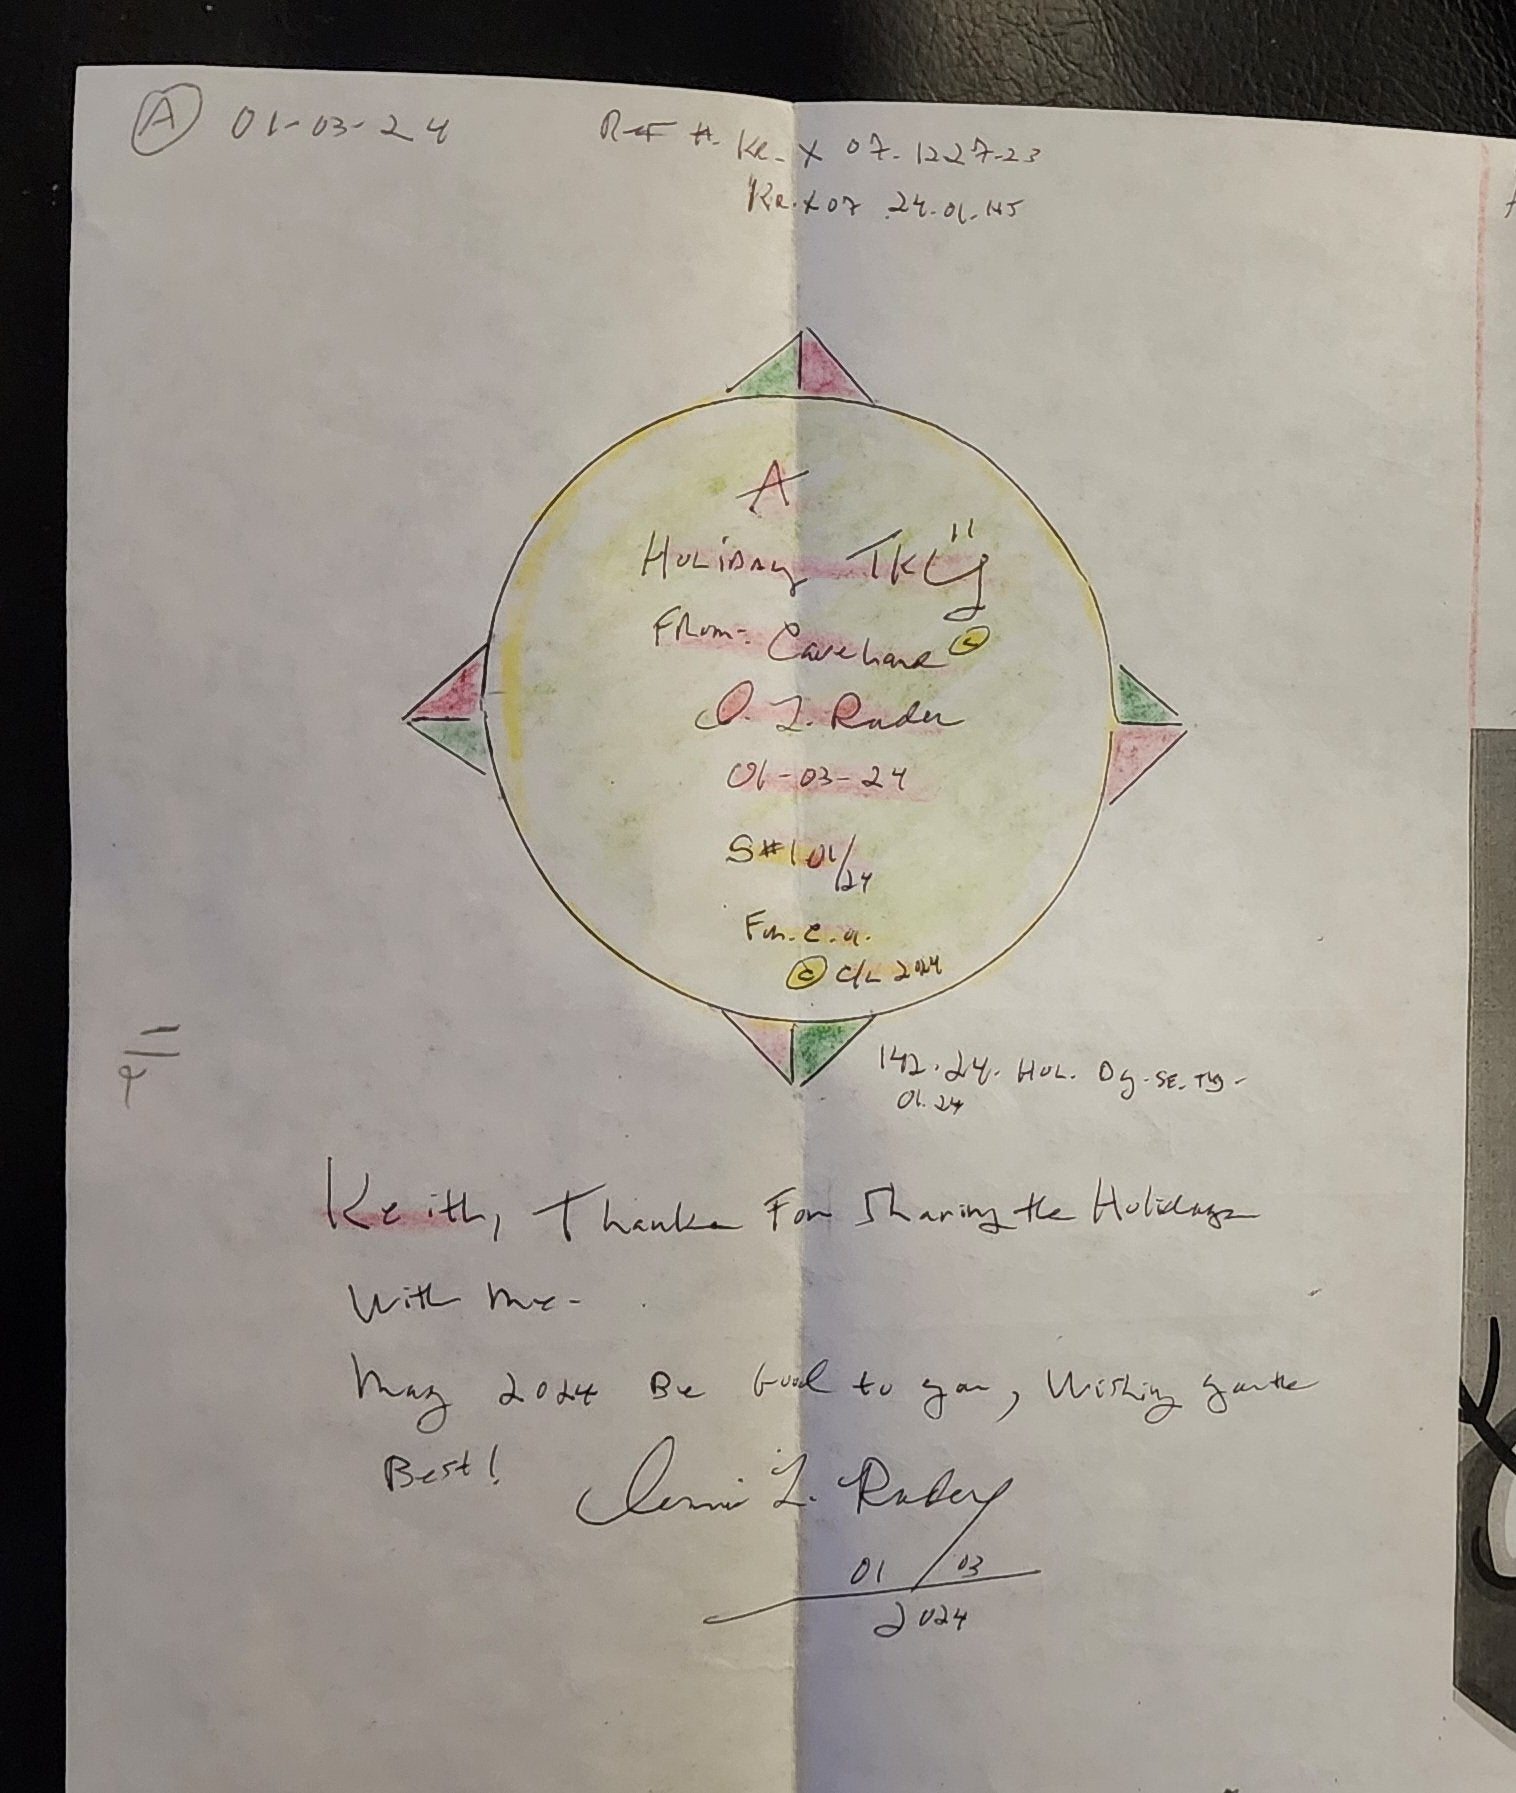 A 01-03-24 Ref #. KR. X 07. 1227-23
KR. X 07 .24.01.
A
Holiday TKY
From:
D. L. Rader
01-03-24
S#1 01/24
C/L 2024
142.24. Hol. Dy. SE. TY-
01.24
Keith, Thanks For Sharing the Holidays
With me-
May 2024 Be Good to you, Wishing you the
Best!
Dennis L. Rader
01/03
2024